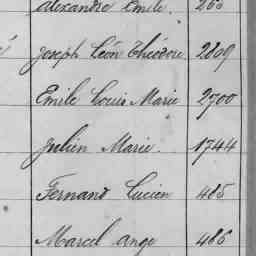 Alexandre Emile. 265
Joseph Léon Théodore 2809
Emile Louis Marie 2700
Julien Marie. 1744
Fernand Lucien 485
Marcel Ange 486